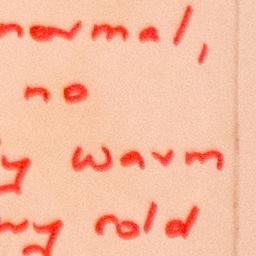 normal,
no
y warm
my cold